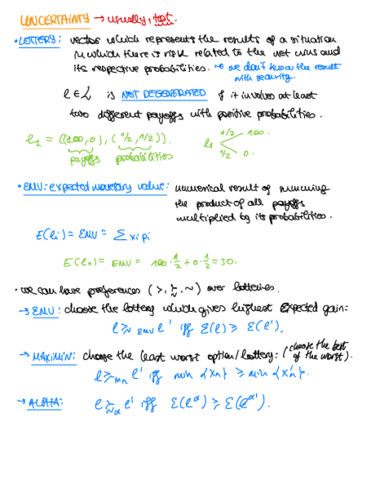 UNCERTAINTY → usually, test.
• LOTTERY: vector which represents the results of a situation
in which there is risk related to the net wins and
its respective probabilities. → we don't know the result
with security.
l ∈ L is NOT DEGENERATED if it involves at least
two different payoffs with positive probabilities.
l₁ = ((100,0), (1/2, 1/2)). l₁ 1/2 100.
1/2 0.
payoffs probabilities
• EMV: expected monetary value: numerical result of summing
the product of all payoffs
multiplied by its probabilities.
E(li) = EMV = ∑ xi pi
E(l₁) = EMV = 100 · 1/2 + 0 · 1/2 = 50.
• we can have preferences (≻, ≿, ~) over lotteries.
→ EMV: choose the lottery which gives highest expected gain:
l ≿ EMV l' iff E(l) ≥ E(l').
→ MAXIMIN: choose the least worst option/lottery: (choose the best
of the worst).
l ≿ Mn l' iff min {xn} ≥ min {x'n}.
→ ALPHA: l ≿α l' iff E(lα) ≥ E(lα').